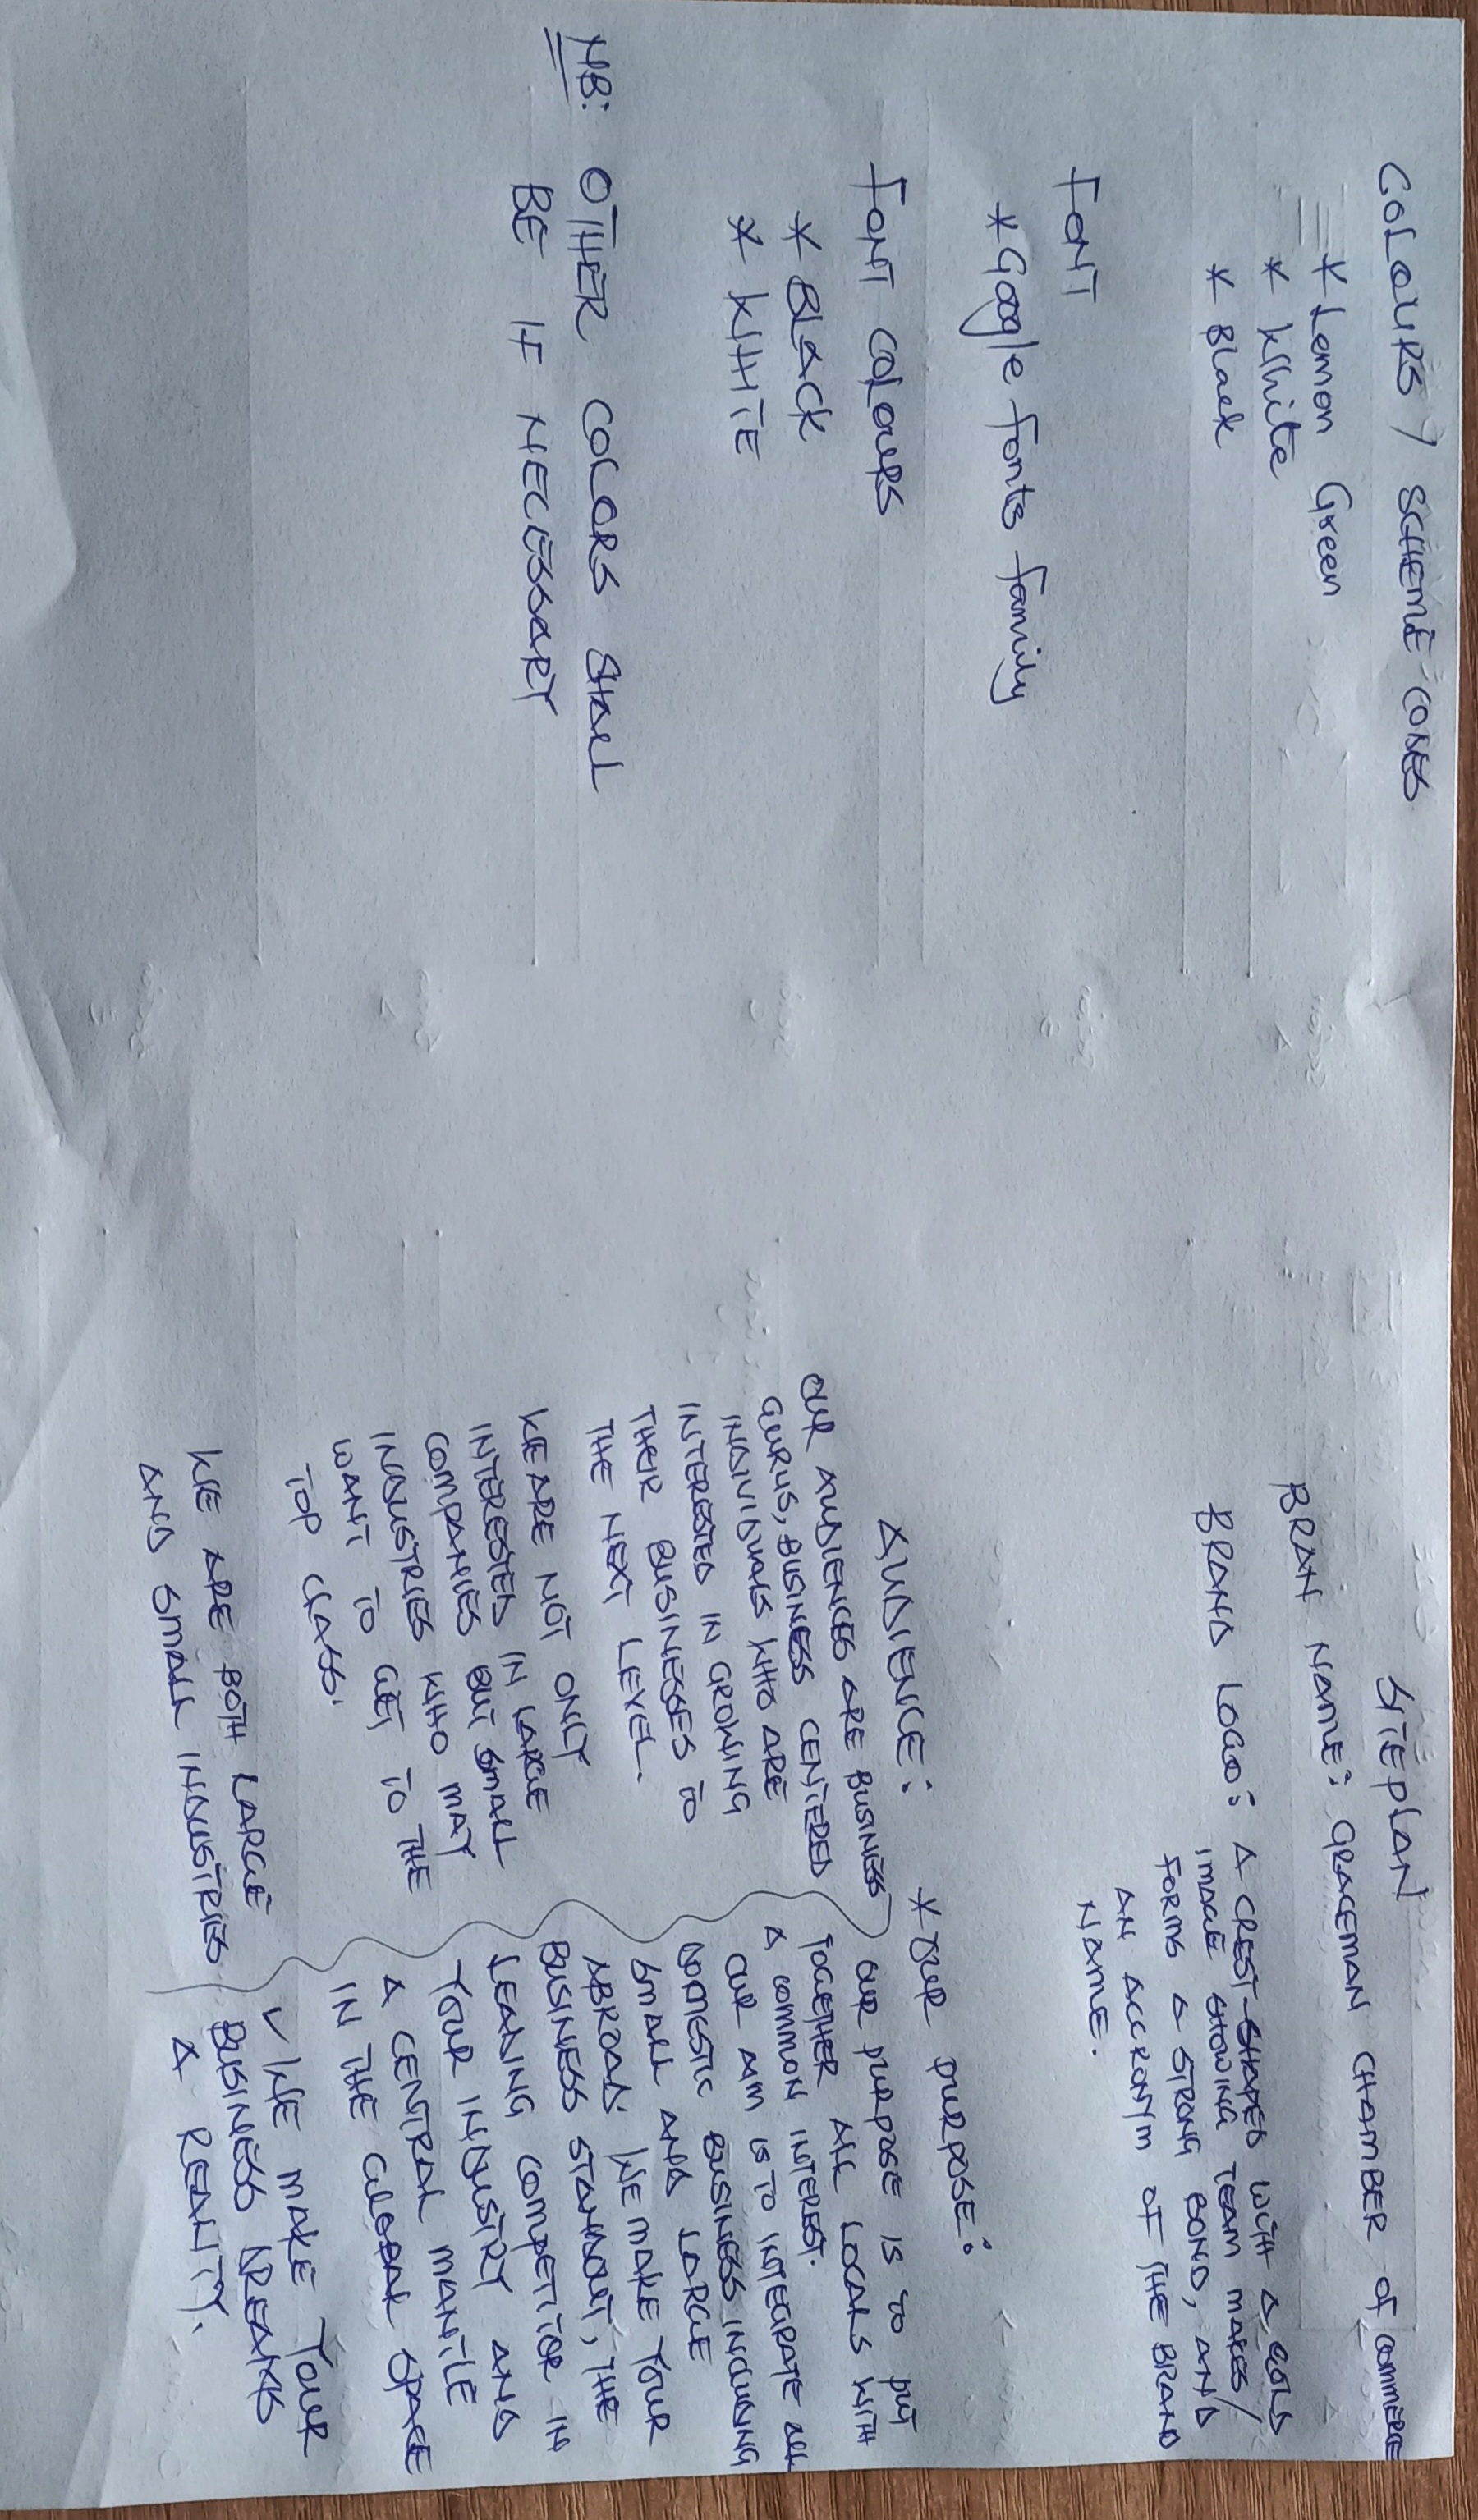 COLOURS / SCHEME CODES
* Lemon Green
* White
* Black
FONT
* Google fonts family
FONT COLOURS
* BLACK
* WHITE
NB: OTHER COLORS SHALL
BE IF NECESSARY
SITEPLAN
BRAN NAME: GRACEMAN CHAMBER OF COMMERCE
BRAND LOGO: A CREST-SHAPED WITH A GOLD
IMAGE SHOWING TEAM MAKES/
FORMS A STRONG BOND, AND
AN ACCRONYM OF THE BRAND
NAME.
AUDIENCE:
OUR AUDIENCES ARE BUSINESS
GURUS, BUSINESS CENTERED
INDIVIDUALS WHO ARE
INTERESTED IN GROWING
THEIR BUSINESSES TO
THE NEXT LEVEL.
WE ARE NOT ONLY
INTERESTED IN LARGE
COMPANIES BUT SMALL
INDUSTRIES WHO MAY
WANT TO GET TO THE
TOP CLASS.
WE ARE BOTH LARGE
AND SMALL INDUSTRIES
* OUR PURPOSE:
OUR PURPOSE IS TO PUT
TOGETHER ALL LOCALS WITH
A COMMON INTEREST.
OUR AIM IS TO INTEGRATE ALL
DOMESTIC BUSINESS INCLUDING
SMALL AND LARGE
ABROAD. WE MAKE YOUR
BUSINESS STANDOUT, THE
LEADING COMPETITOR IN
YOUR INDUSTRY AND
A CENTRAL MANTLE
IN THE GLOBAL SPACE
✓ WE MAKE YOUR
BUSINESS DREAMS
A REALITY.